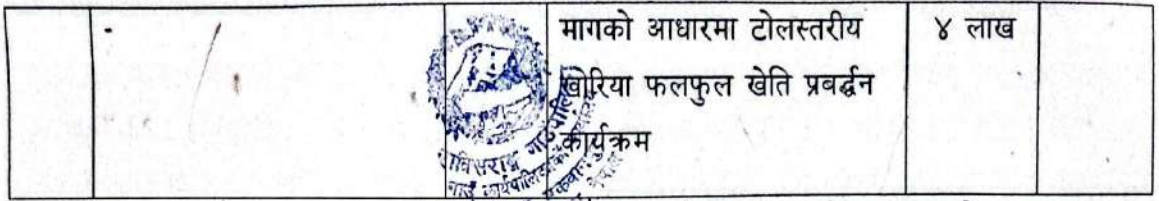 मागको आधारमा टोलस्तरीय
खोरिया फलफुल खेति प्रवर्द्धन
कार्यक्रम
४ लाख